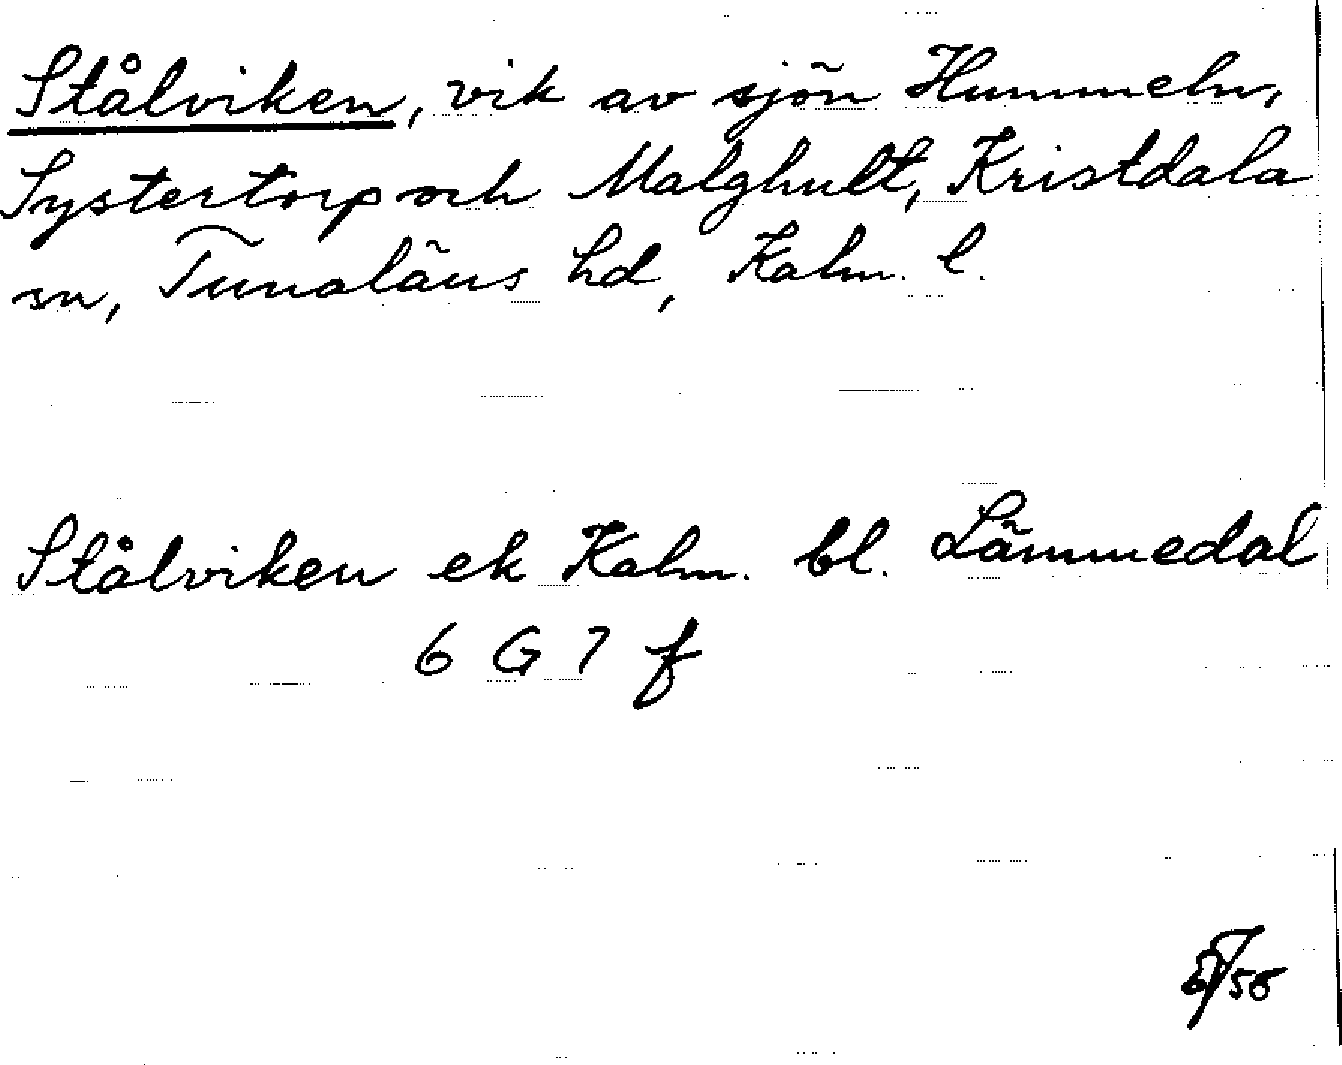 Stålviken, vik av sjön Hummeln,
Systertorp och Malghult, Kristdala
sn, Tunaläns hd, Kalm. l.
Stålviken ek Kalm. bl. Lämmedal
6 G 7 f